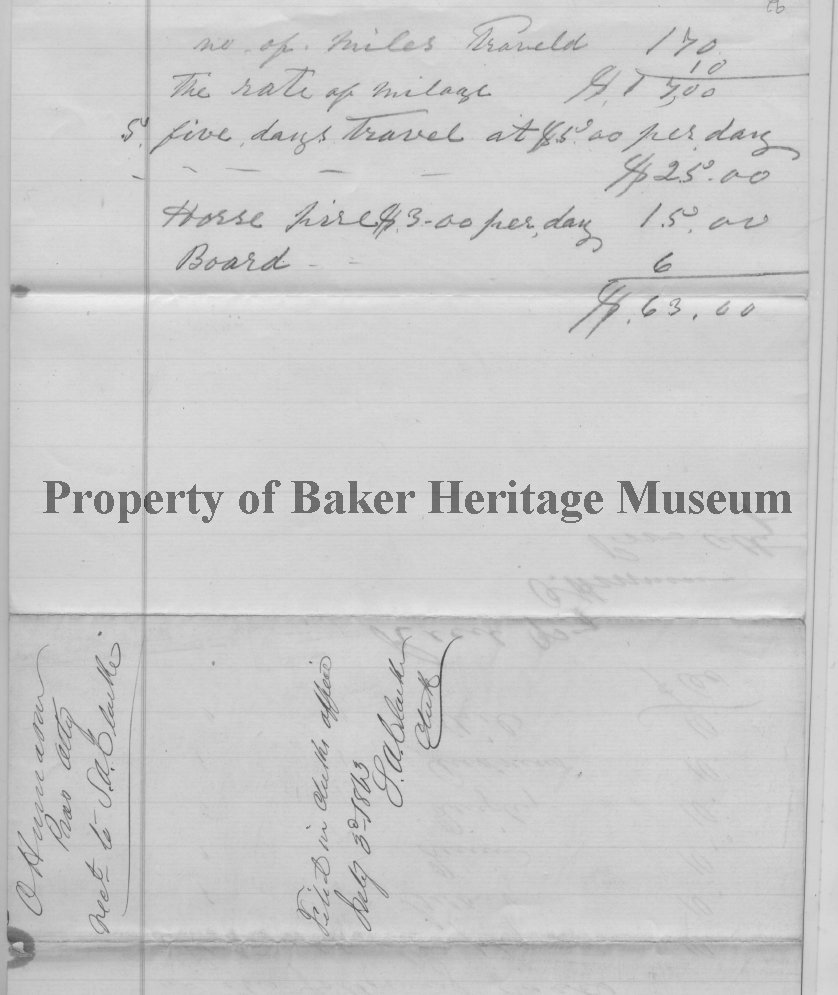 no. of. miles Traveld 170
10
The rate of milage $.17,00
5. five days Travel at $5.00 per day
- - - - - $25.00
Horse hire $.3-00 per day 15.00
Board - - 6
$.63.00
Property of Baker Heritage Museum
O Humason
Pros Atty
rect to S.A. Clarke
Filed in clerks office
July 3d 1863
S.A. Clarke
Clerk